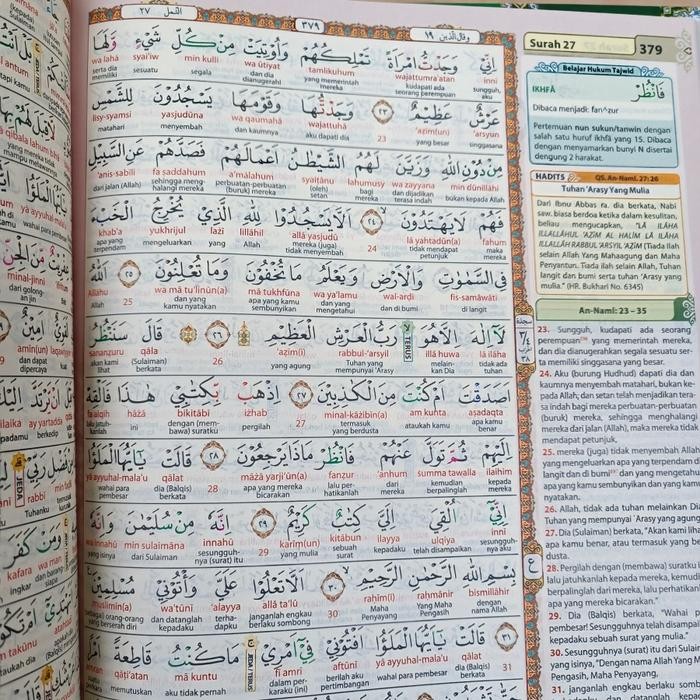 ٢٧ النمل
٣٧٩
وقال الذين ١٩
اِنِّيْ وَجَدْتُّ امْرَاَةً تَمْلِكُهُمْ وَاُوْتِيَتْ مِنْ كُلِّ شَيْءٍ وَّلَهَا
inni wajattumra'atan tamlikuhum wa ūtiyat min kulli syai'iw wa lahā
sungguh, aku kudapati ada seorang perempuan yang memerintah mereka dan dia dianugerahi segala sesuatu serta dia memiliki
عَرْشٌ عَظِيْمٌ ٢٣ وَجَدْتُّهَا وَقَوْمَهَا يَسْجُدُوْنَ لِلشَّمْسِ
'arsyun 'aẓīm(un) wajattuhā wa qaumahā yasjudūna lisy-syamsi
singgasana yang besar 23 aku dapati dia dan kaumnya menyembah matahari
مِنْ دُوْنِ اللّٰهِ وَزَيَّنَ لَهُمُ الشَّيْطٰنُ اَعْمَالَهُمْ فَصَدَّهُمْ عَنِ السَّبِيْلِ
min dūnillāhi wa zayyana lahumusy syaiṭānu a'mālahum fa ṣaddahum 'anis-sabīli
bukan kepada Allah dan dijadikan terasa indah bagi mereka (oleh) setan perbuatan-perbuatan (buruk) mereka sehingga menghalangi mereka dari jalan (Allah)
فَهُمْ لَا يَهْتَدُوْنَ ٢٤ اَلَّا يَسْجُدُوْا لِلّٰهِ الَّذِيْ يُخْرِجُ الْخَبْءَ
fahum lā yahtadūn(a) allā yasjudū lillāhil lażī yukhrijul khab'a
maka mereka tidak mendapat petunjuk 24 mereka (juga) tidak menyembah Allah yang mengeluarkan apa yang terpendam
فِى السَّمٰوٰتِ وَالْاَرْضِ وَيَعْلَمُ مَا تُخْفُوْنَ وَمَا تُعْلِنُوْنَ ٢٥ اَللّٰهُ
fis-samāwāti wal-arḍi wa ya'lamu mā tukhfūna wa mā tu'linūn(a) Allāhu
di langit dan bumi dan yang mengetahui apa yang kamu sembunyikan dan yang kamu nyatakan 25 Allah
لَآ اِلٰهَ اِلَّا هُوَ رَبُّ الْعَرْشِ الْعَظِيْمِ ٢٦ قَالَ سَنَنْظُرُ
lā ilāha illā huwa rabbul-'arsyil 'aẓīm(i) qāla sananẓuru
tidak ada tuhan melainkan Dia Tuhan yang mempunyai 'Arasy yang agung 26 dia (Sulaiman) berkata akan kami lihat
TERUS
اَصَدَقْتَ اَمْ كُنْتَ مِنَ الْكٰذِبِيْنَ ٢٧ اِذْهَبْ بِّكِتٰبِيْ هٰذَا فَاَلْقِهْ
aṣadaqta am kunta minal-kāżibīn(a) iżhab bikitābī hāżā fa alqih
apa kamu benar ataukah kamu termasuk yang berdusta 27 pergilah dengan (membawa) suratku ini lalu jatuhkanlah
اِلَيْهِمْ ثُمَّ تَوَلَّ عَنْهُمْ فَانْظُرْ مَاذَا يَرْجِعُوْنَ ٢٨ قَالَتْ يٰٓاَيُّهَا الْمَلَؤُا
ilaihim summa tawalla 'anhum fanẓur māżā yarji'ūn(a) qālat yā ayyuhal-mala'u
kepada mereka kemudian berpalinglah dari mereka lalu perhatikanlah apa yang mereka bicarakan 28 dia (Balqis) berkata wahai para pembesar
اِنِّيْٓ اُلْقِيَ اِلَيَّ كِتٰبٌ كَرِيْمٌ ٢٩ اِنَّهٗ مِنْ سُلَيْمٰنَ وَاِنَّهٗ
innī ulqiya ilayya kitābun karīm(un) innahū min sulaimāna wa innahū
sesungguhnya aku telah disampaikan kepadaku sebuah surat yang mulia 29 sesungguhnya (surat) itu dari Sulaiman yang isinya
بِسْمِ اللّٰهِ الرَّحْمٰنِ الرَّحِيْمِ ٣٠ اَلَّا تَعْلُوْا عَلَيَّ وَأْتُوْنِيْ مُسْلِمِيْنَ
bismillāhir rahmānir rahīm(i) allā ta'lū 'alayya wa'tūnī muslimīn(a)
dengan nama Allah Yang Maha Pengasih Maha Penyayang 30 janganlah engkau berlaku sombong terhadapku dan datanglah kepadaku (sebagai) orang-orang yang berserah diri
٣١ قَالَتْ يٰٓاَيُّهَا الْمَلَؤُا اَفْتُوْنِيْ فِيْٓ اَمْرِيْ مَا كُنْتُ قَاطِعَةً اَمْرًا
31 qālat yā ayyuhal-mala'u aftūnī fī amrī mā kuntu qāṭi'atan amran
dia (Balqis) berkata wahai para pembesar berilah aku pertimbangan dalam perkaraku (ini) aku tidak pernah memutuskan
Surah 27 379
Belajar Hukum Tajwid
IKHFĀ فَانْظُرْ
Dibaca menjadi: fan^zur
Pertemuan nun sukun/tanwin dengan
salah satu huruf ikhfā yang 15. Dibaca
dengan menyamarkan bunyi N disertai
dengung 2 harakat.
HADITS QS. An-Naml. 27: 26
Tuhan 'Arasy Yang Mulia
Dari Ibnu Abbas ra. dia berkata, Nabi
saw. biasa berdoa ketika dalam kesulitan,
beliau mengucapkan, "LĀ ILĀHA
ILLALLĀHUL 'AZĪM AL HALĪM LĀ ILĀHA
ILLALLĀH RABBUL 'ARSYIL 'AZĪM (Tiada Ilah
selain Allah Yang Mahaagung dan Maha
Penyantun. Tiada Ilah selain Allah, Tuhan
langit dan bumi serta tuhan 'Arasy yang
mulia." (HR. Bukhari No. 6345)
An-Naml: 23 – 35
23. Sungguh, kudapati ada seorang
perempuan yang memerintah mereka,
dan dia dianugerahi segala sesuatu ser-
ta memiliki singgasana yang besar.
24. Aku (burung Hudhud) dapati dia dan
kaumnya menyembah matahari, bukan ke-
pada Allah; dan setan telah menjadikan tera-
sa indah bagi mereka perbuatan-perbuatan
(buruk) mereka, sehingga menghalangi
mereka dari jalan (Allah), maka mereka tidak
mendapat petunjuk,
25. mereka (juga) tidak menyembah Allah
yang mengeluarkan apa yang terpendam di
langit dan di bumi dan yang mengetahui
apa yang kamu sembunyikan dan yang kamu
nyatakan.
26. Allah, tidak ada tuhan melainkan Dia,
Tuhan yang mempunyai 'Arasy yang agung."
27. Dia (Sulaiman) berkata, "Akan kami lihat,
apa kamu benar, atau termasuk yang ber-
dusta.
28. Pergilah dengan (membawa) suratku ini,
lalu jatuhkanlah kepada mereka, kemudian
berpalinglah dari mereka, lalu perhatikanlah
apa yang mereka bicarakan."
29. Dia (Balqis) berkata, "Wahai
pembesar! Sesungguhnya telah disampaikan
kepadaku sebuah surat yang mulia."
30. Sesungguhnya (surat) itu dari Sulaiman
yang isinya, "Dengan nama Allah Yang
Pengasih, Maha Penyayang,
31. janganlah engkau berlaku sombong